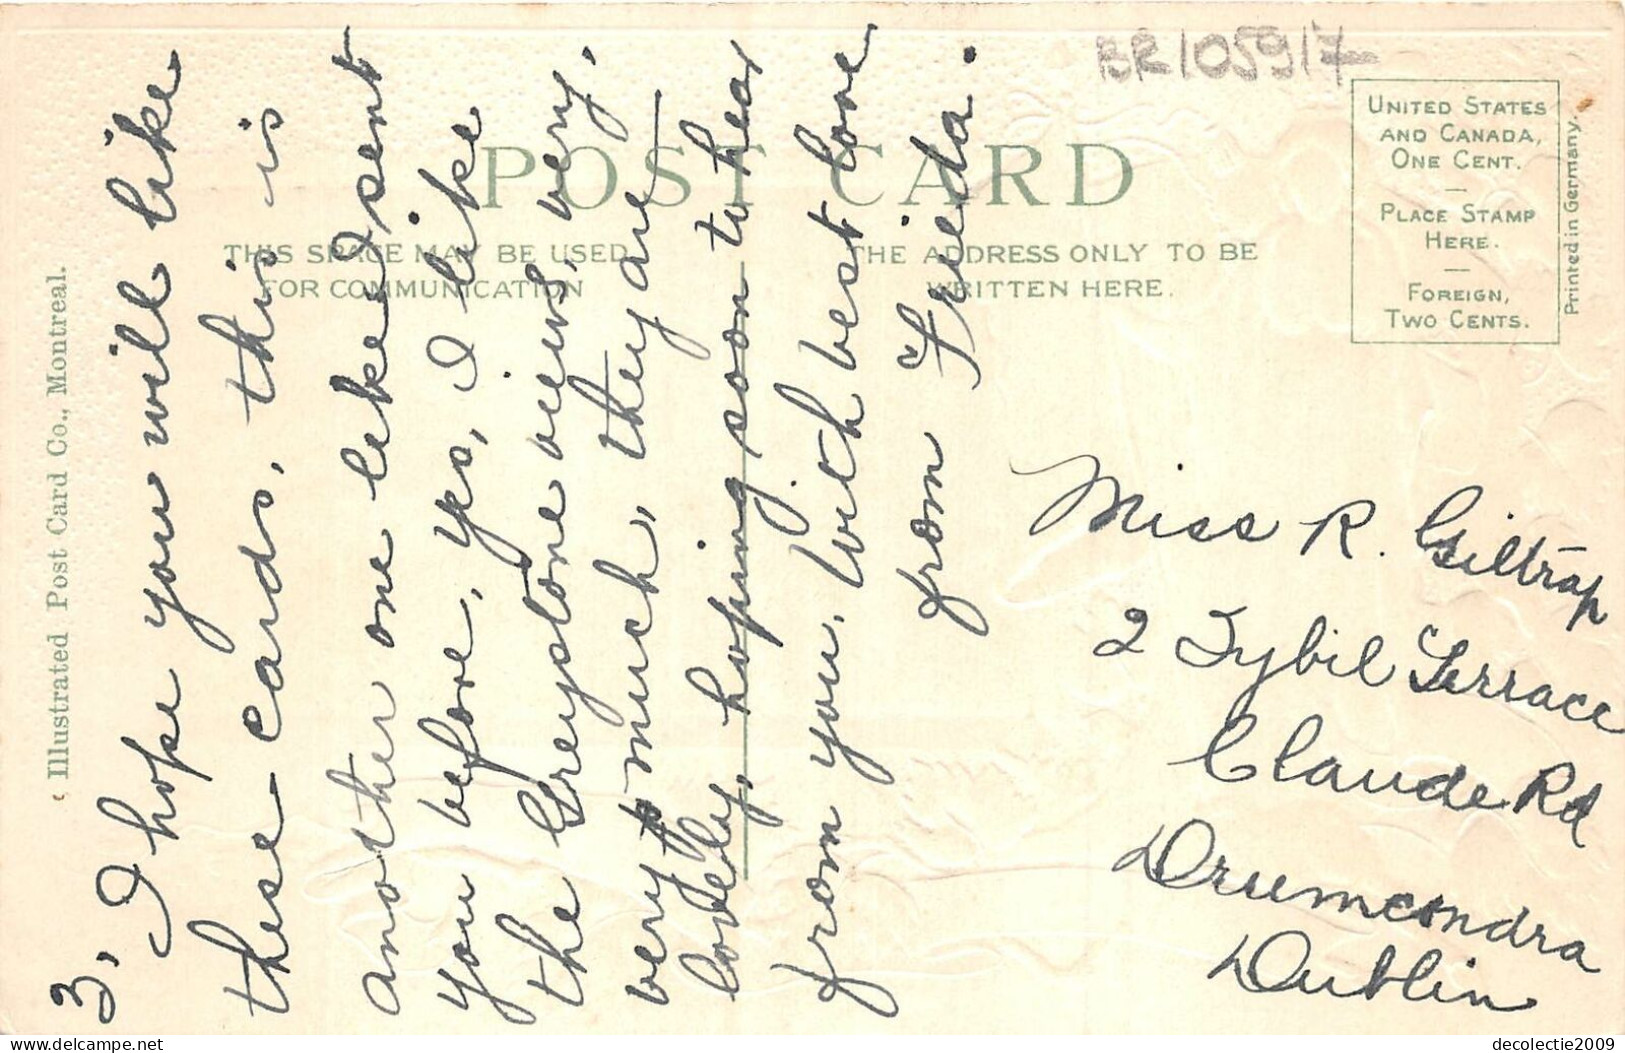 BR105917
POST CARD
THIS SPACE MAY BE USED
FOR COMMUNICATION
THE ADDRESS ONLY TO BE
WRITTEN HERE.
UNITED STATES
AND CANADA,
ONE CENT.
—
PLACE STAMP
HERE.
—
FOREIGN,
TWO CENTS.
Printed in Germany.
Illustrated Post Card Co., Montreal.
3, I hope you will like
these cards, this is
another one like I sent
you before, yes, I like
the Greystone views, very,
very much, they are
lovely, hoping soon to hear
from you. With best love
from Frieda.
Miss R. Giltrap
2 Sybil Terrace
Claude Rd
Drumcondra
Dublin
delcampe.net
decolectie2009